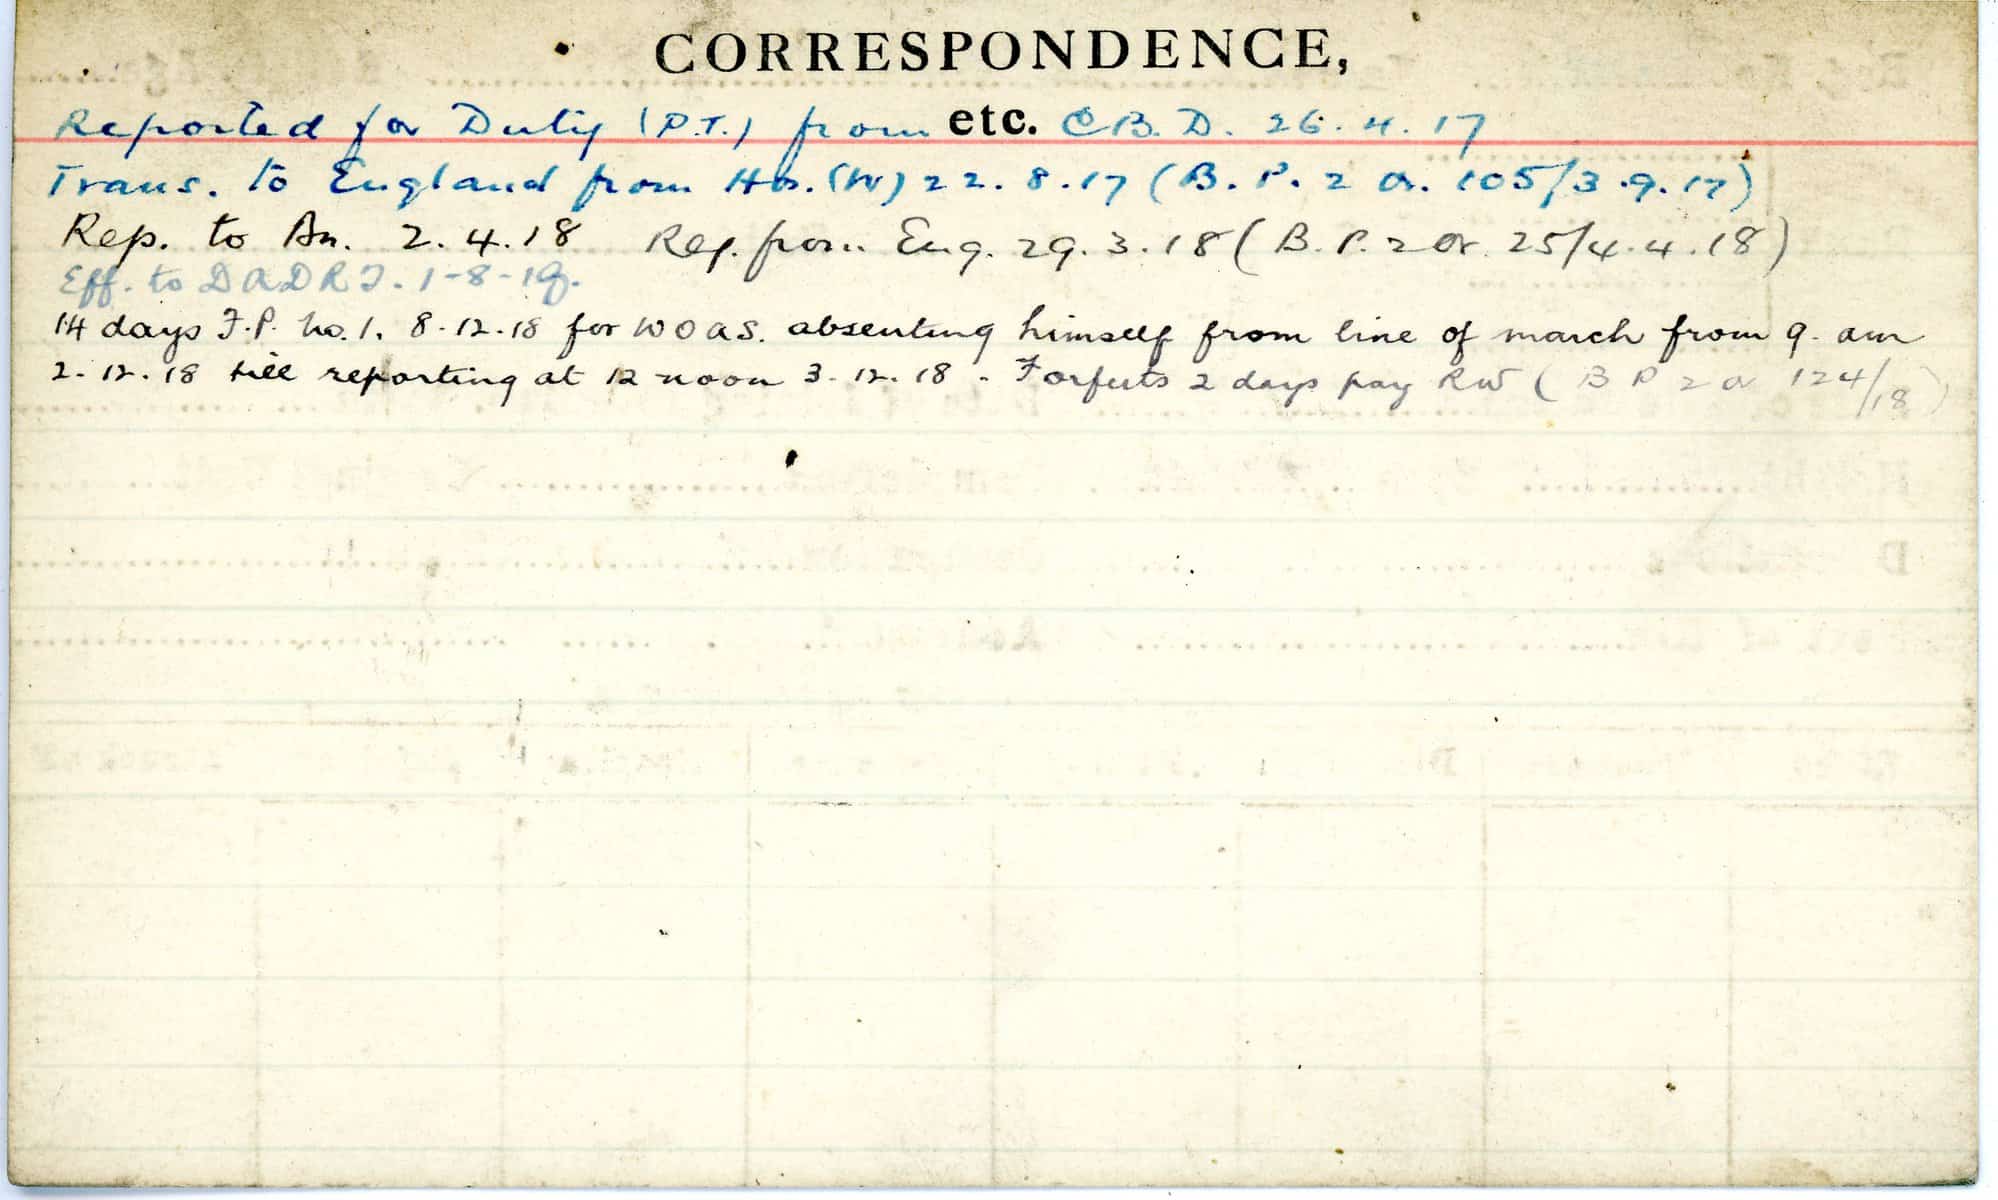 CORRESPONDENCE,
etc.
Reported for Duty (P.T.) from C.B.D. 26.4.17
Trans. to England from Hos. (W) 22.8.17 (B.P. 2 Or. 105/3.9.17)
Rep. to Bn. 2.4.18 Rep. from Eng. 29.3.18 (B.P. 2 Or 25/4.4.18)
Eff. to DADRT. 1-8-18.
14 days F.P. No.1. 8.12.18 for WOAS. absenting himself from line of march from 9. am
2.12.18 till reporting at 12 noon 3.12.18. Forfeits 2 days pay RW (B P 2 Or 124/18)